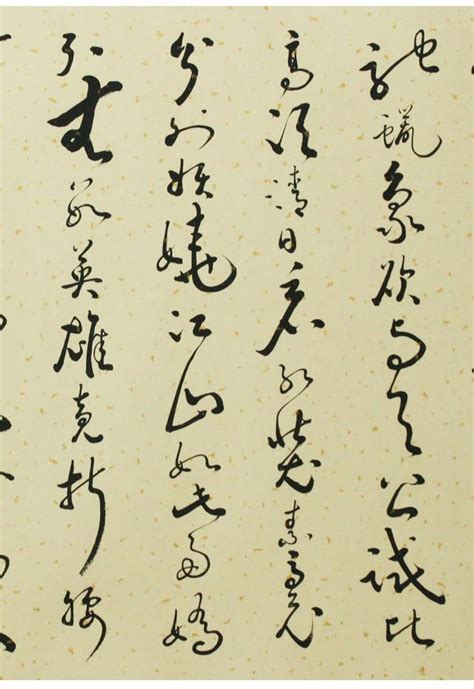 驰蜡象欲与天公试比
高须清日看红装素裹
分外妖娆江山如此多娇
引无数英雄竞折腰